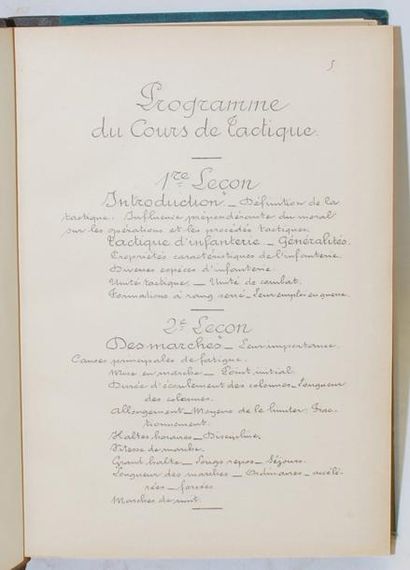 5
Programme
du Cours de Tactique.
1re Leçon
Introduction._ Définition de la
tactique. Influence prépondérante du moral
sur les opérations et les procédés tactiques.
Tactique d'infanterie _ Généralités.
Propriétés caractéristiques de l'infanterie.
Diverses espèces d'infanterie.
Unité tactique. _ Unité de combat.
Formations à rang serré _ Leur emploi en guerre.
2e Leçon
Des marches _ Leur importance.
Causes principales de fatigue.
Mise en marche _ Point initial.
Durée d'écoulement des colonnes _ Longueur
des colonnes.
Allongement _ Moyens de le limiter. Frac-
tionnement.
Haltes horaires _ Discipline.
Vitesse de marche.
Grand'halte _ Longs repos _ Séjours.
Longueur des marches _ Ordinaires _ accélé-
rées _ forcées
Marches de nuit.